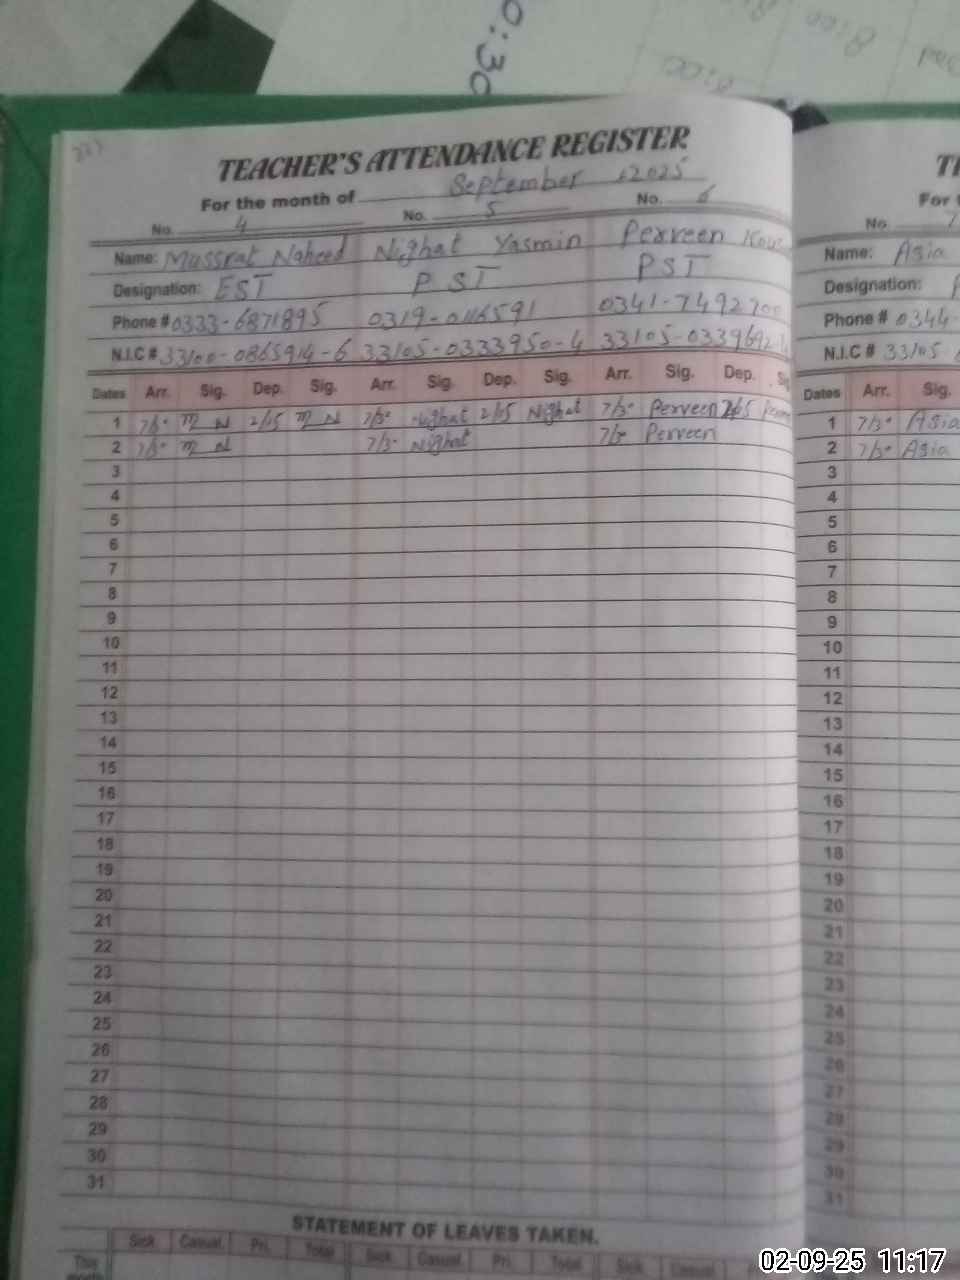 0:30
8:00
8:00
TEACHER'S ATTENDANCE REGISTER
For the month of September 2025
No. 4 No. 5 No. 6
Name: Mussrat Naheed Nighat Yasmin Perveen
Designation: EST PST PST
Phone # 0333-6871895 0319-0116591 0341-7492700
N.I.C # 33100-0865914-6 33105-0333950-4 33105-0339692
Dates Arr. Sig. Dep. Sig. Arr. Sig. Dep. Sig. Arr. Sig. Dep.
1 7/30 M N 2/15 M N 7/30 Nighat 2/15 Nighat 7/30 Perveen 2/15
2 7/30 M N 7/30 Nighat 7/30 Perveen
3
4
5
6
7
8
9
10
11
12
13
14
15
16
17
18
19
20
21
22
23
24
25
26
27
28
29
30
31
STATEMENT OF LEAVES TAKEN.
Sick Casual Pri. Total Sick Casual Pri. Total Sick Casual
This
month
No. 7
Name: Asia
Designation:
Phone # 0344-
N.I.C # 33105
Dates Arr. Sig.
1 7/30 Asia
2 7/30 Asia
3
4
5
6
7
8
9
10
11
12
13
14
15
16
17
18
19
20
21
22
23
24
25
26
27
28
29
30
31
02-09-25 11:17